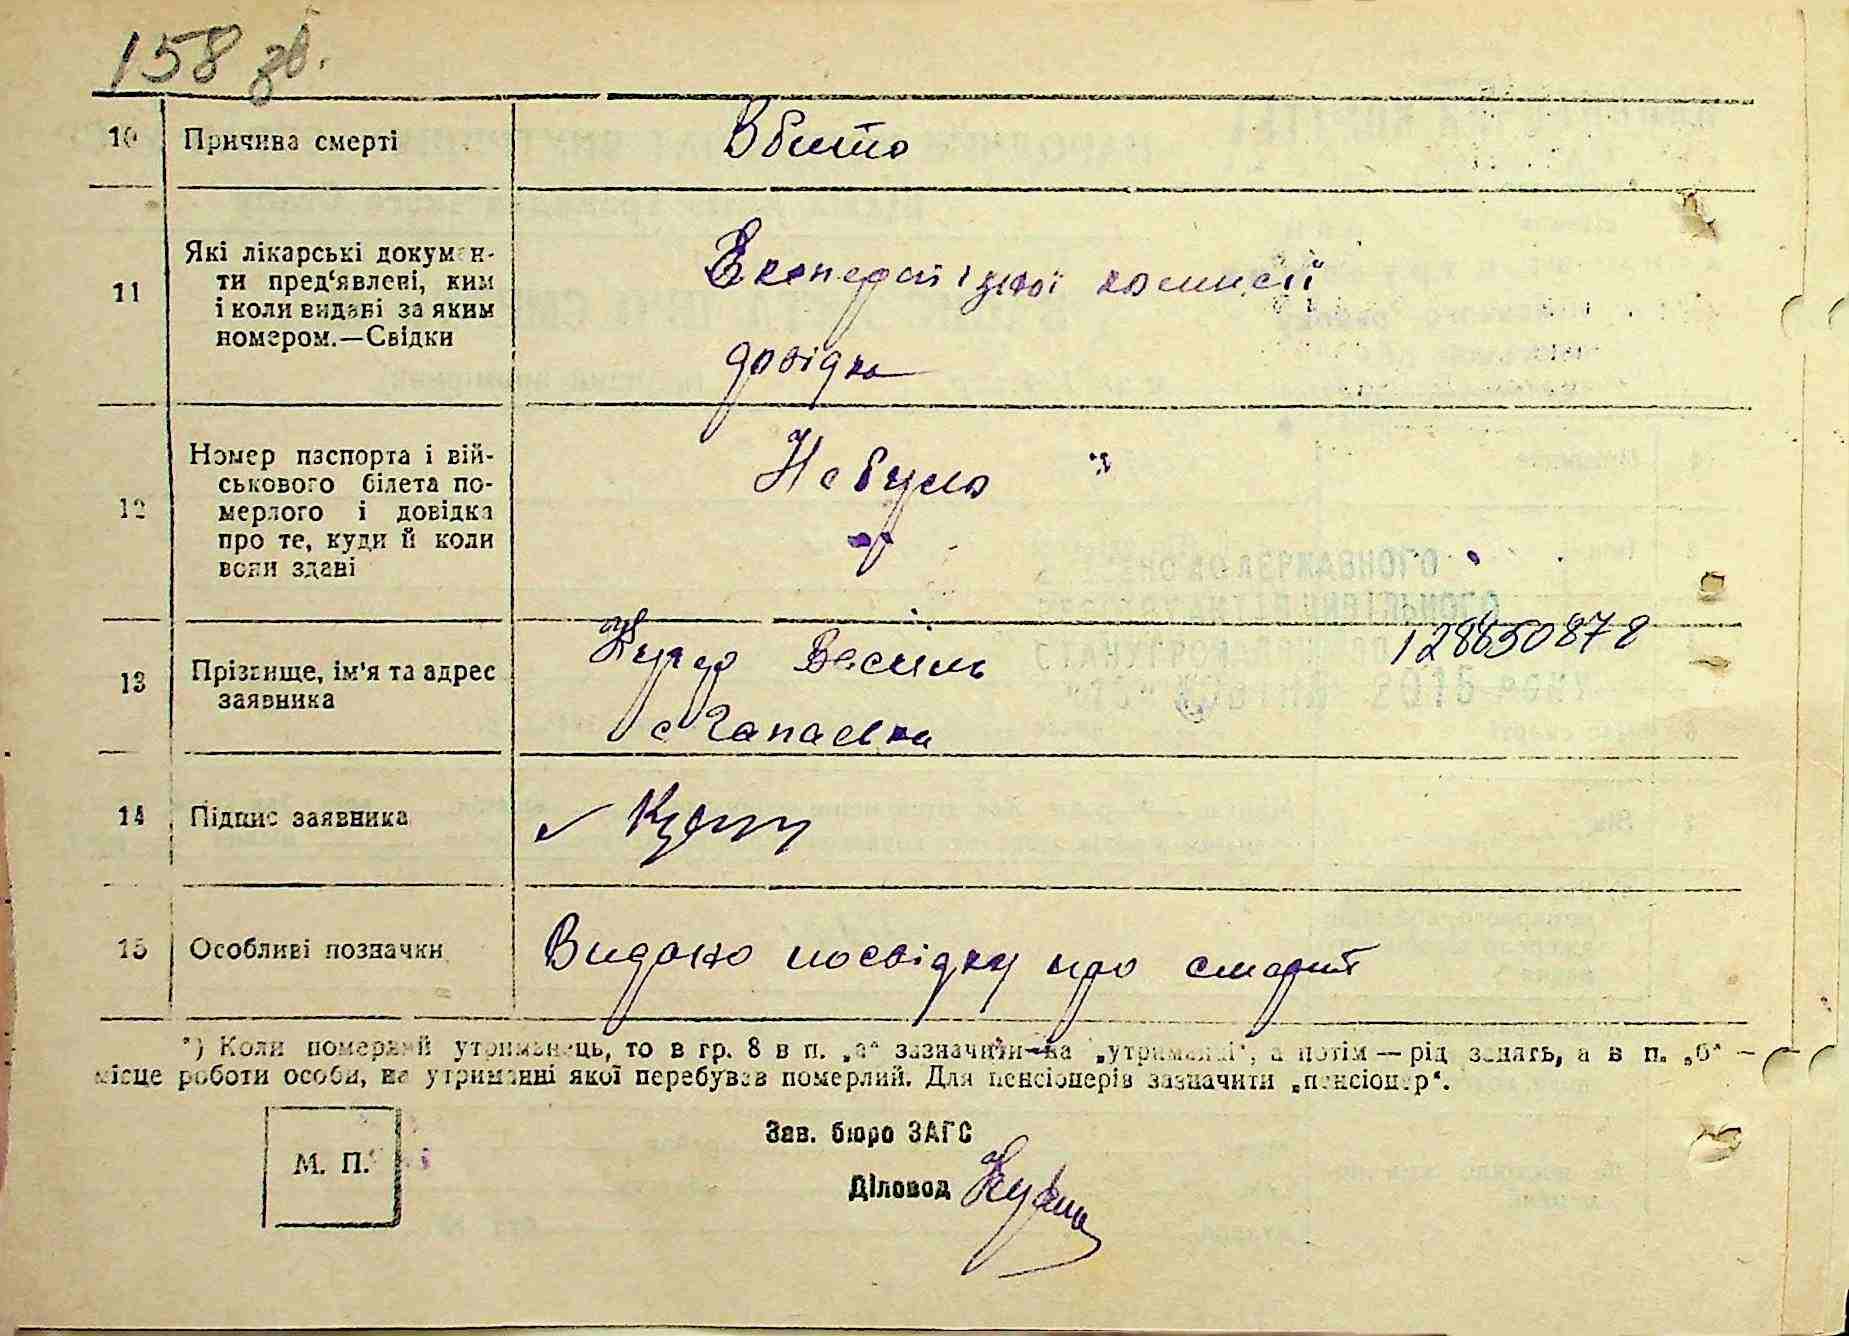 158 зв.
10 Причина смерті Вбито
11 Які лікарські докумен-
ти пред'явлені, ким
і коли видані за яким
номером.—Свідки
комисії
довідка
12 Номер паспорта і вій-
ськового білета по-
мерлого і довідка
про те, куди й коли
вони здані
Не було
13 Прізвище, ім'я та адрес
заявника
Василь
с Чапаєвка
128650878
14 Підпис заявника
15 Особливі позначки Видано посвідку про смерть
*) Коли померлий утриманець, то в гр. 8 в п. „а“ зазначити—на „утриманні“, а потім — рід занять, а в п. „б“ —
місце роботи особи, на утриманні якої перебував померлий. Для пенсіонерів зазначити „пенсіонер“.
Зав. бюро ЗАГС
М. П.
Діловод